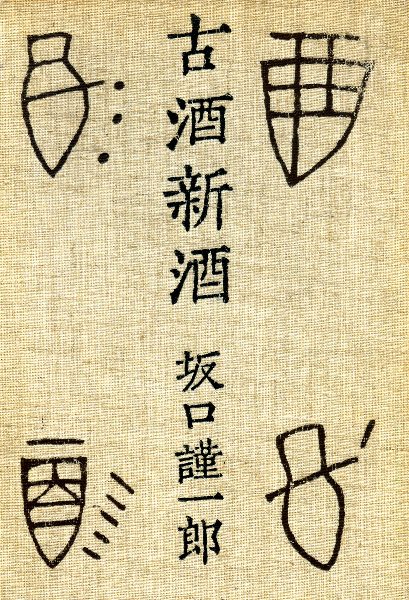 古酒新酒
坂口謹一郎